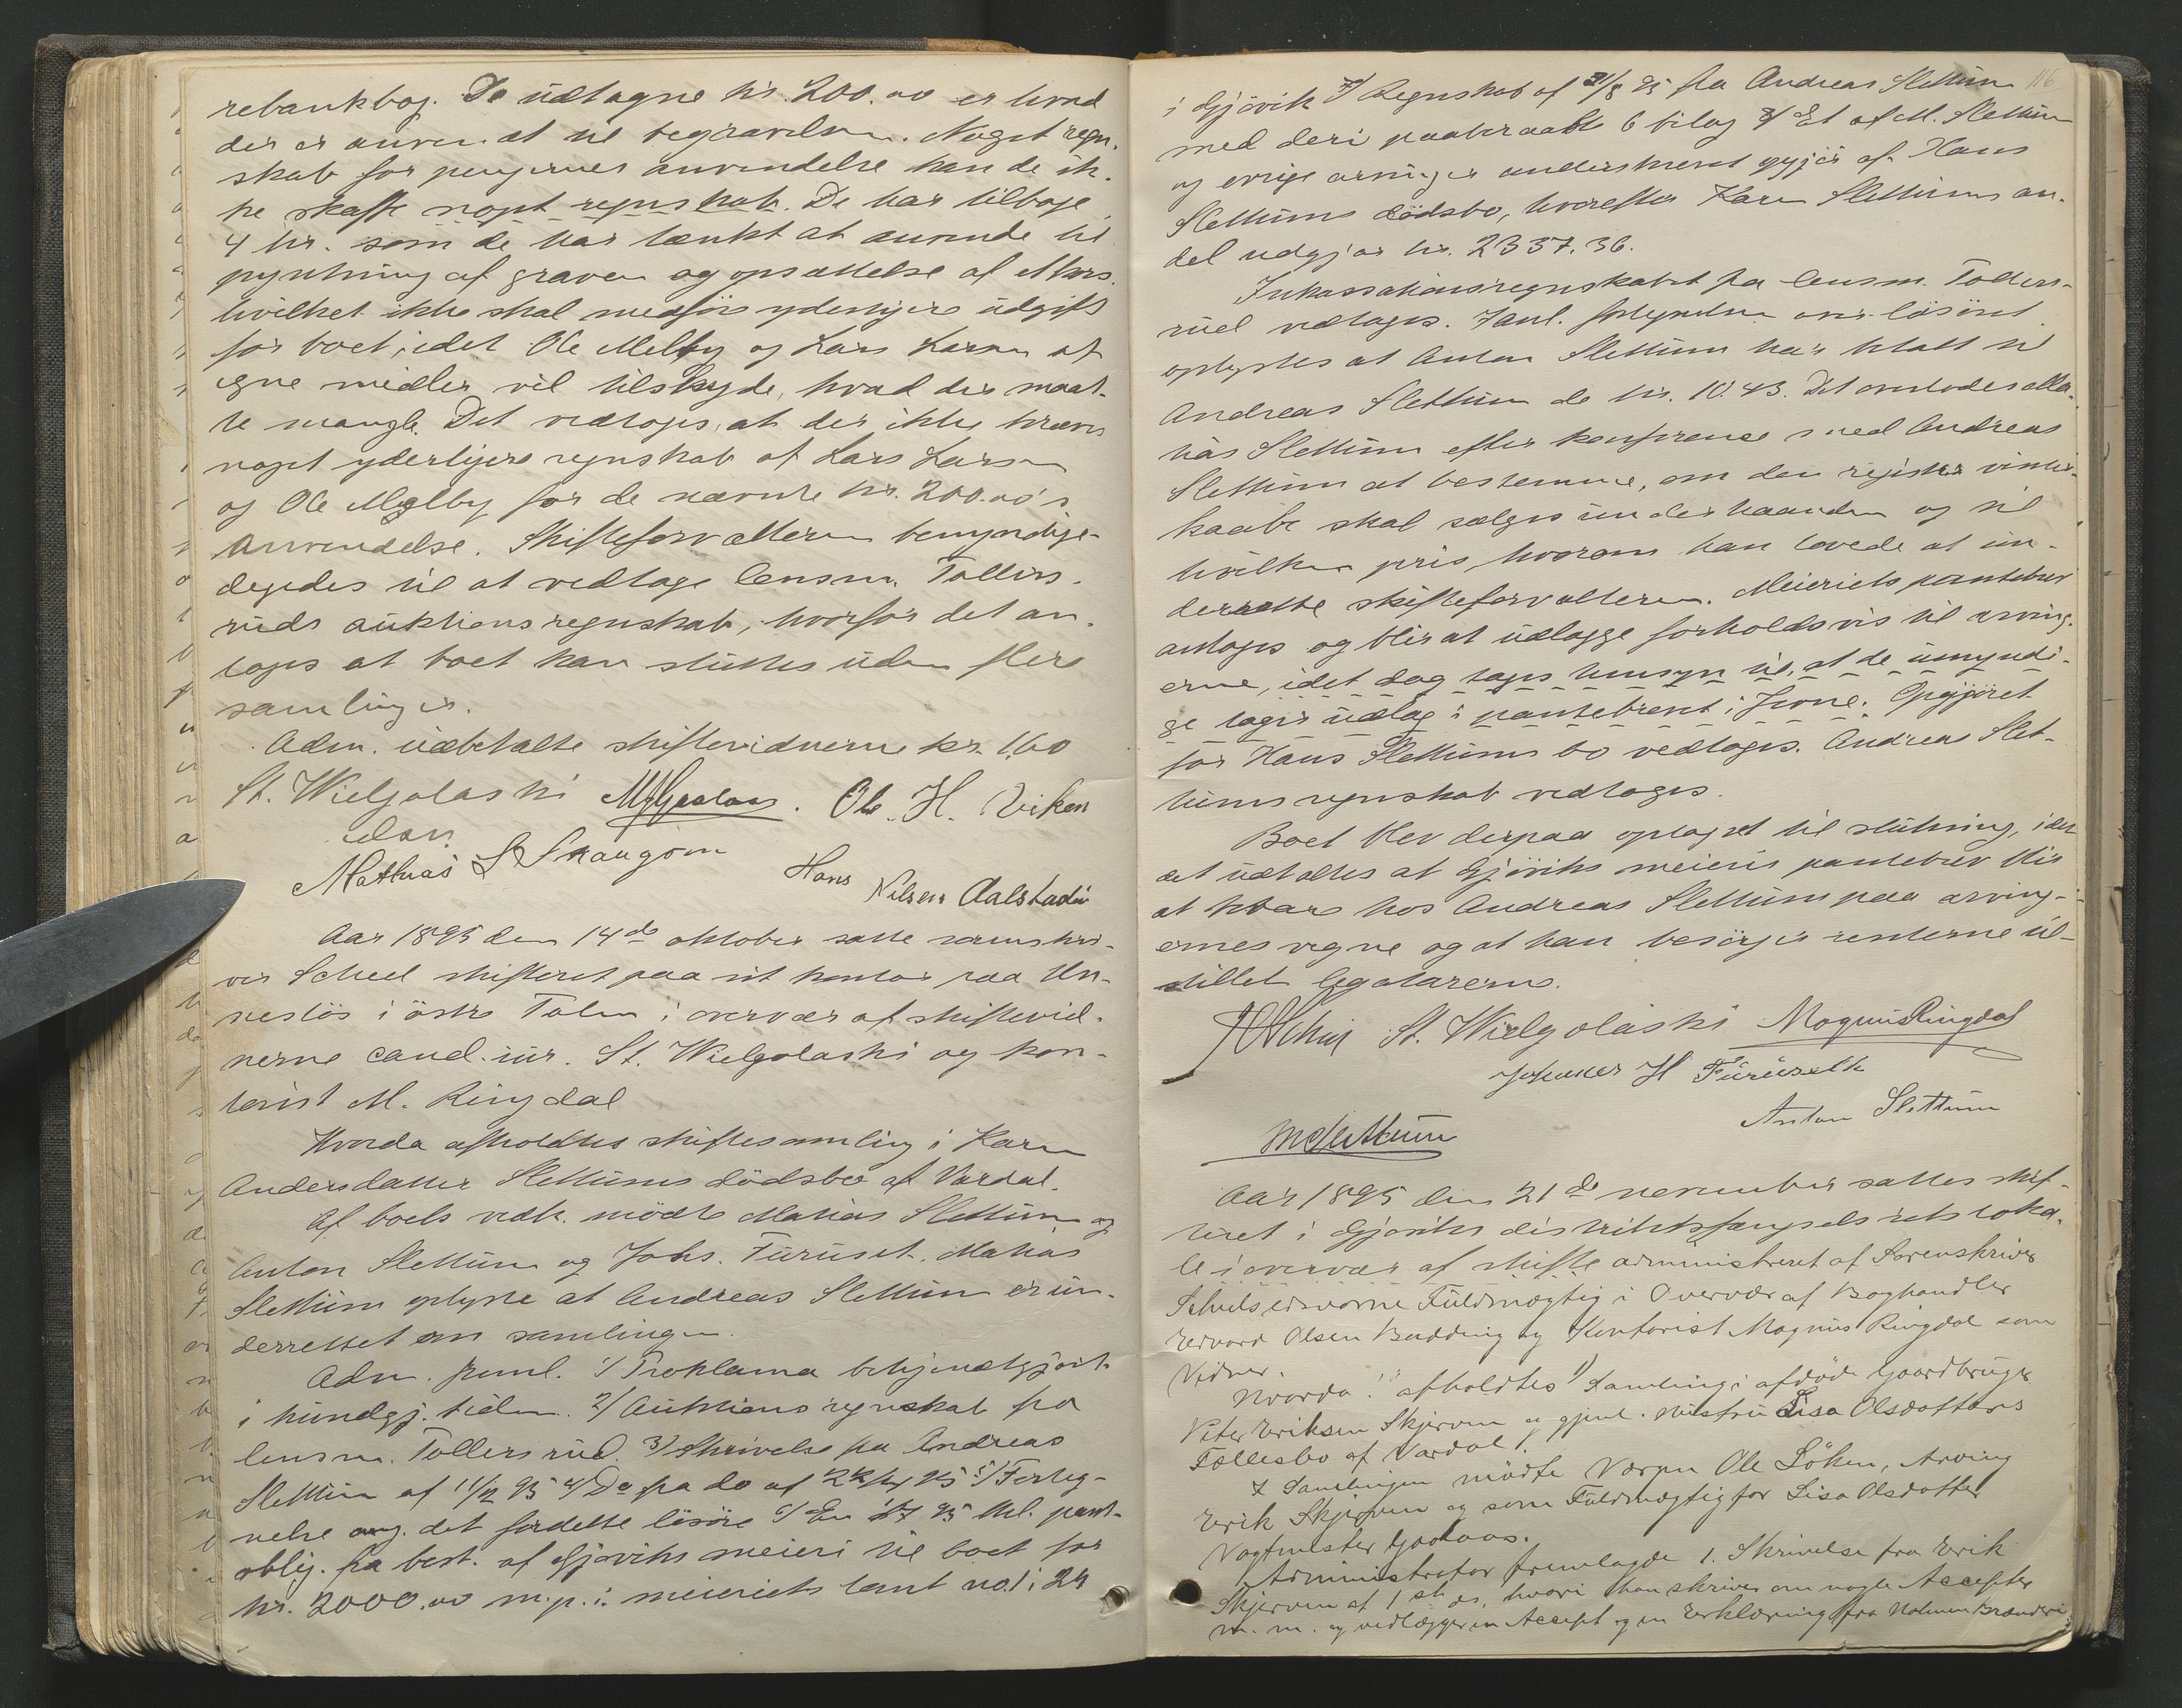 rebankbog. De udtagne kr. 200.00 er hvad
der er anvendt til begravelsen. Noget regn-
skab for pengernes anvendelse kan de ik-
ke skaffe noget regnskab. De har tilbage
4 kr. som de har tænkt at anvende til
pyntning af graven og opsættelse af
hvilket ikke skal medføre yderligere udgift
for boet, idet Ole Melby og Lars Larsen af
egne midler vil tilskyde, hvad der maat-
te mangle. Det vedtoges, at der ikke kræves
noget yderligere regnskab af Lars Larsen
og Ole Melby for de nævnte kr. 200.00's
Anvendelse. Skifteforvalteren bemyndige-
degedes til at vedtage lensm. Tollers-
ruds auktionsregnskab, hvorfor det an-
toges at boet kan sluttes uden flere
samlinger.
Adm. udbetalte skiftevidnerne kr. 1.60
St. Wielgolaski M Gaalaas. Ole. H. Viken
Mathias L Skaugom
Hans Nilsen Aalstadei
Aar 1895 den 14de oktober satte sorenskri-
ver Scheel skifteret paa sit kontor paa Un-
neslös i östre Toten i overvær af skiftevid-
nerne cand. jur. St. Wielgolaski og kon-
torist M. Ringdal
Hvorda afholdtes skiftesamling i Karen
Andersdatter Slettums dödsbo af Vardal.
Af boets vedk. mödte Matias Slettum og
Anton Slettum og Johs. Furuset. Matias
Slettum oplyste at Andreas Slettum er un-
derrettet om samlingen.
Adm. freml. 1/ Proklama bekjendtgjort
i kundgj. tiden. 2/ Auktionsregnskab fra
lensm. Tollersrud. 3/ Skrivelse fra Andreas
Slettum af 95 4/ Do fra do af 95 5/ Forteg-
nelse ang. det fordelte lösöre 6/ En 95 pant-
oblig. fra best. af Gjøviks meieri til boet for
kr. 2000.00 m. p. i meieriets tomt no. 1 i 24
116
i Gjövik 7/ Regnskab af 95 fra Andreas Slettum
med deri paaberaabte 6 bilag 8/ Et af M. Slettum
og övrige arvinger underskrevet opgjör af Hans
Slettums dödsbo, hvorefter Karen Slettums an-
del udgjør kr. 2337.36.
Inkassationsregnskabet fra lensm. Tollers-
rud vedtages. Jævnf. fortegnelsen over lösöret
oplystes at Anton Slettum har betalt til
Andreas Slettum de kr. 10.43. Det overlodes Mat-
hias Slettum efter konferance med Andreas
Slettum at bestemme, om den registr. vinter-
kaabe skal sælges underhaanden og til
hvilken pris, hvorom han lovede at un-
derrette skifteforvalteren. Meieriets pantebrev
antoges og blir at udlægge forholdsvis til arving-
erne, idet dog tages hensyn til, at de umyndi-
ge tager udlæg i pantebrevet i Jerne. Opgjöret
for Hans Slettums bo vedtoges. Andreas Slet-
tums regnskab vedtoges.
Boet blev derpaa optaget til slutning, idet
det udtaltes at Gjöviks meieris pantebrev blir
at bero hos Andreas Slettum paa arving-
ernes vegne og at han besörger renterne til-
stillet legatarerne.
St. Wielgolaski Magnus Ringdal
Johannes H Furuseth
Anton Slettum
M Slettum
Aar 1895 den 21de november sattes skif-
teret i Gjøviks distriktsfængsels retsloka-
le i overvær af skifte administreret af Sorenskriver
Scheels edsvorne Fuldmægtig i Overvær af Boghandler
Edvard Olsen Budding og Kontorist Magnus Ringdal som
Vidner.
Hvorda: afholdtes 1) Samling i afdöde Gaardbruger
Peter Eriksen Skjerven og gjenl. Hustru Lisa Olsdatters
Fællesbo af Vardal.
I Samlingen mödte Værgen Ole Löken, Arving
Erik Skjerven og som Fuldmægtig for Lisa Olsdatter
Vagtmester Gaalaas.
Administrator fremlagde 1. Skrivelse fra Erik
Skjerven af 1 ds. ds, hvori han skriver om nogle Accepter
m. m. og vedlægger en Accept og en Erklæring fra Holmen Brænderi